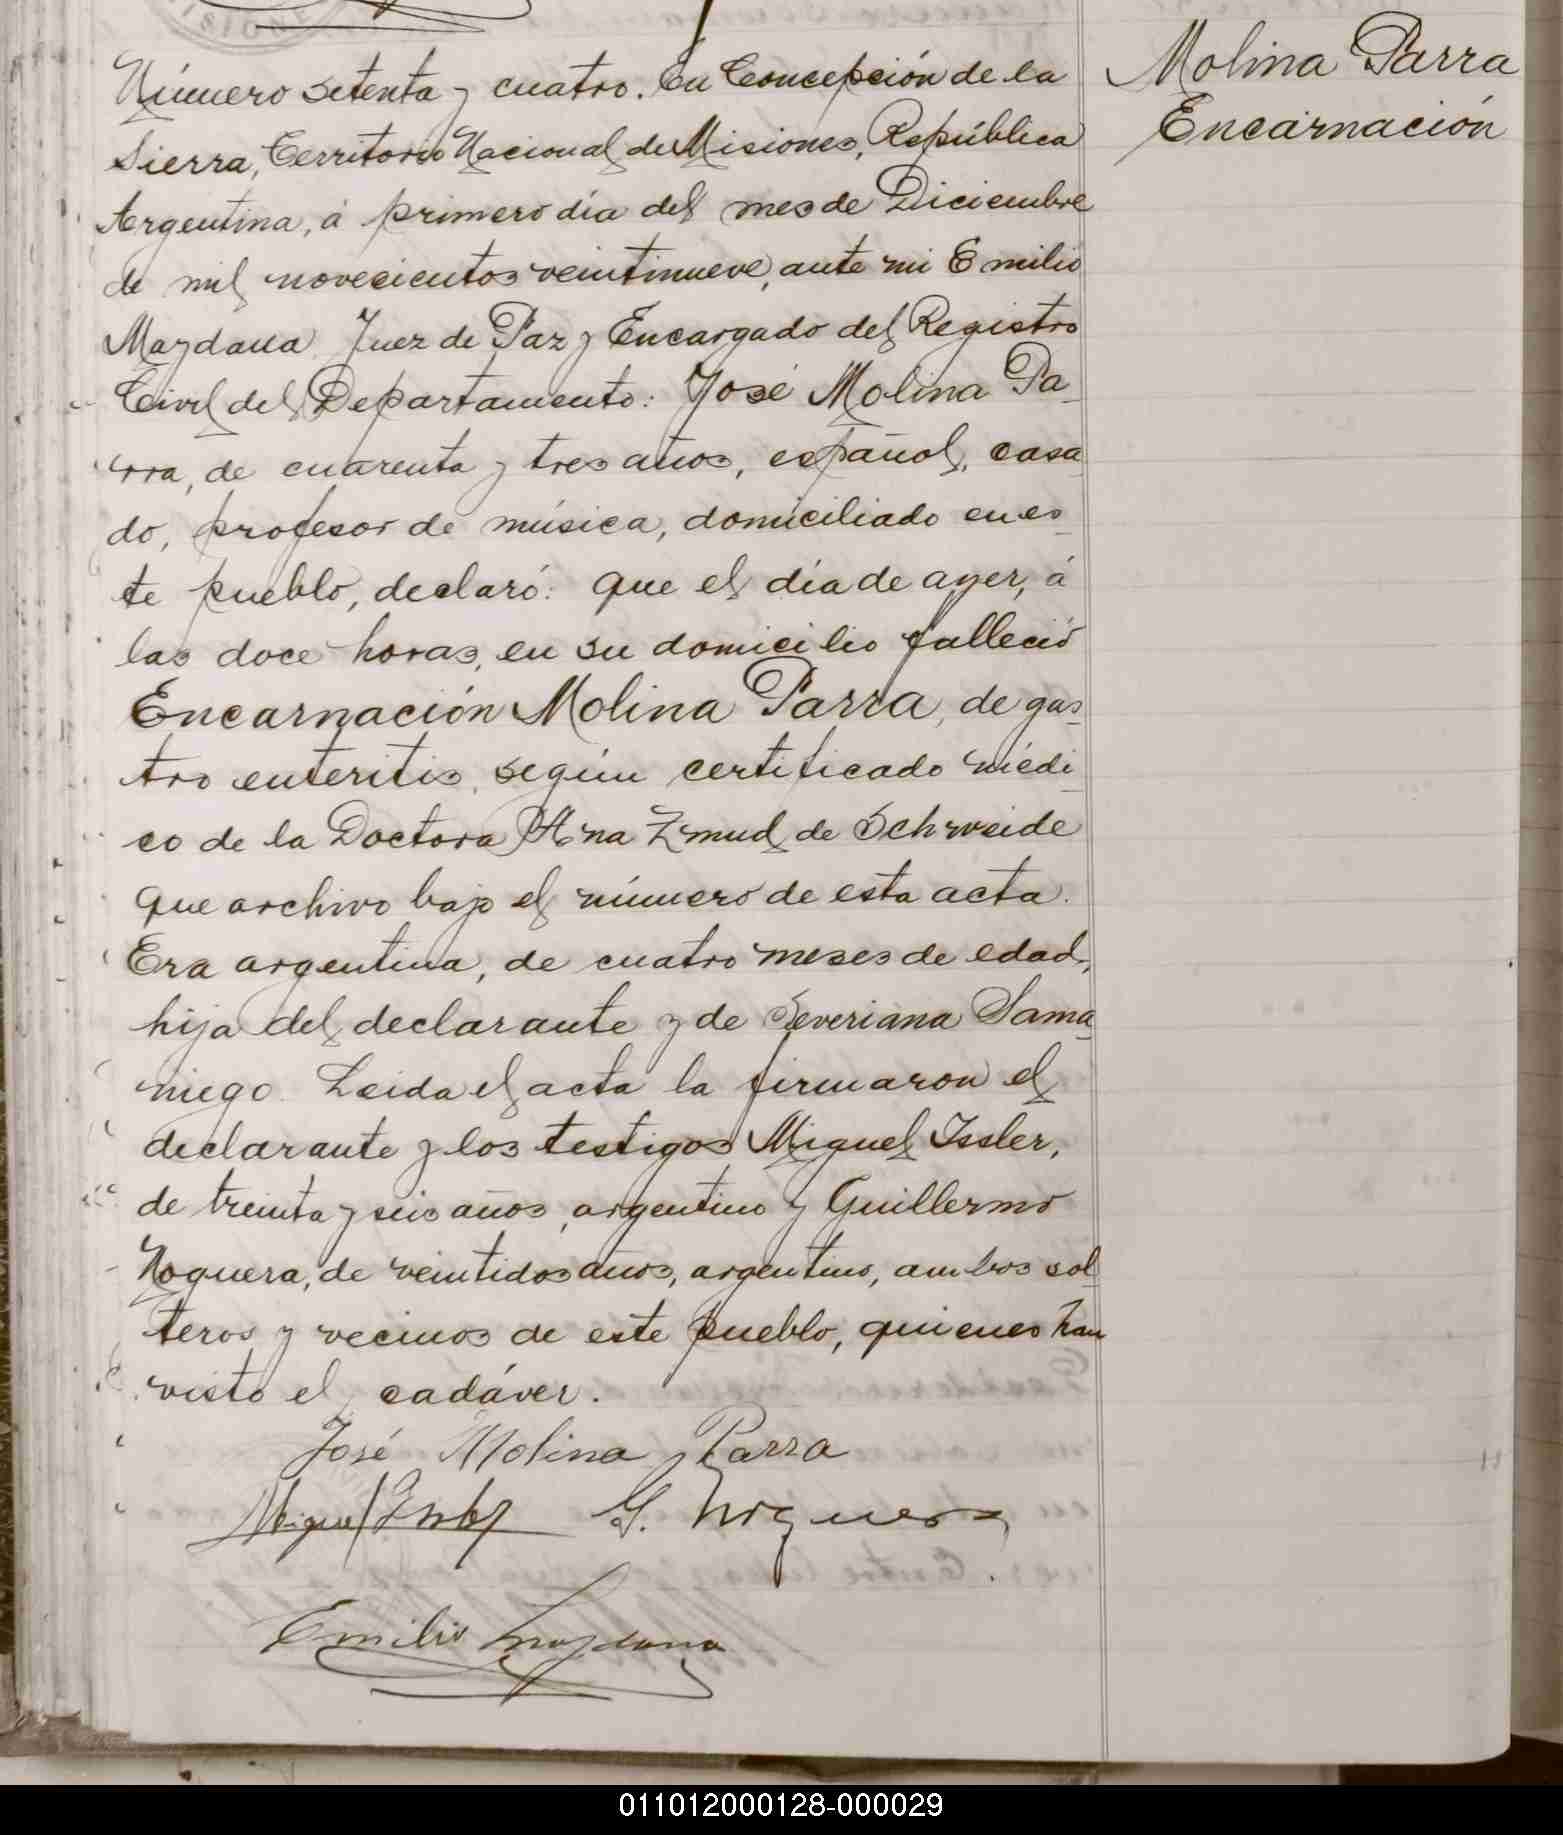 Número setenta y cuatro. En Concepción de la
Sierra, Territorio Nacional de Misiones, República
Argentina, á primero día del mes de Diciembre
de mil novecientos veintinueve, ante mi Emilio
Maydana Juez de Paz y Encargado del Registro
Civil del Departamento: José Molina Pa-
rra, de cuarenta y tres años, español, casa-
do, profesor de música, domiciliado en es-
te pueblo, declaró: que el día de ayer, á
las doce horas, en su domicilio falleció
Encarnación Molina Parra, de gas-
tro enteritis, según certificado médi-
co de la Doctora Ana Zmud de Schrveide
que archivo bajo el número de esta acta.
Era argentina, de cuatro meses de edad,
hija del declarante y de Severiana Sama-
niego. Leida el acta la firmaron el
declarante y los testigos Miguel Issler,
de treinta y seis años, argentino y Guillermo
Noguera, de veintidos años, argentino, ambos sol-
teros y vecinos de este pueblo, quienes han
visto el cadáver.
José Molina Parra
Miguel Issler G. Noguera
Emilio Maydana
Molina Parra
Encarnación
011012000128-000029